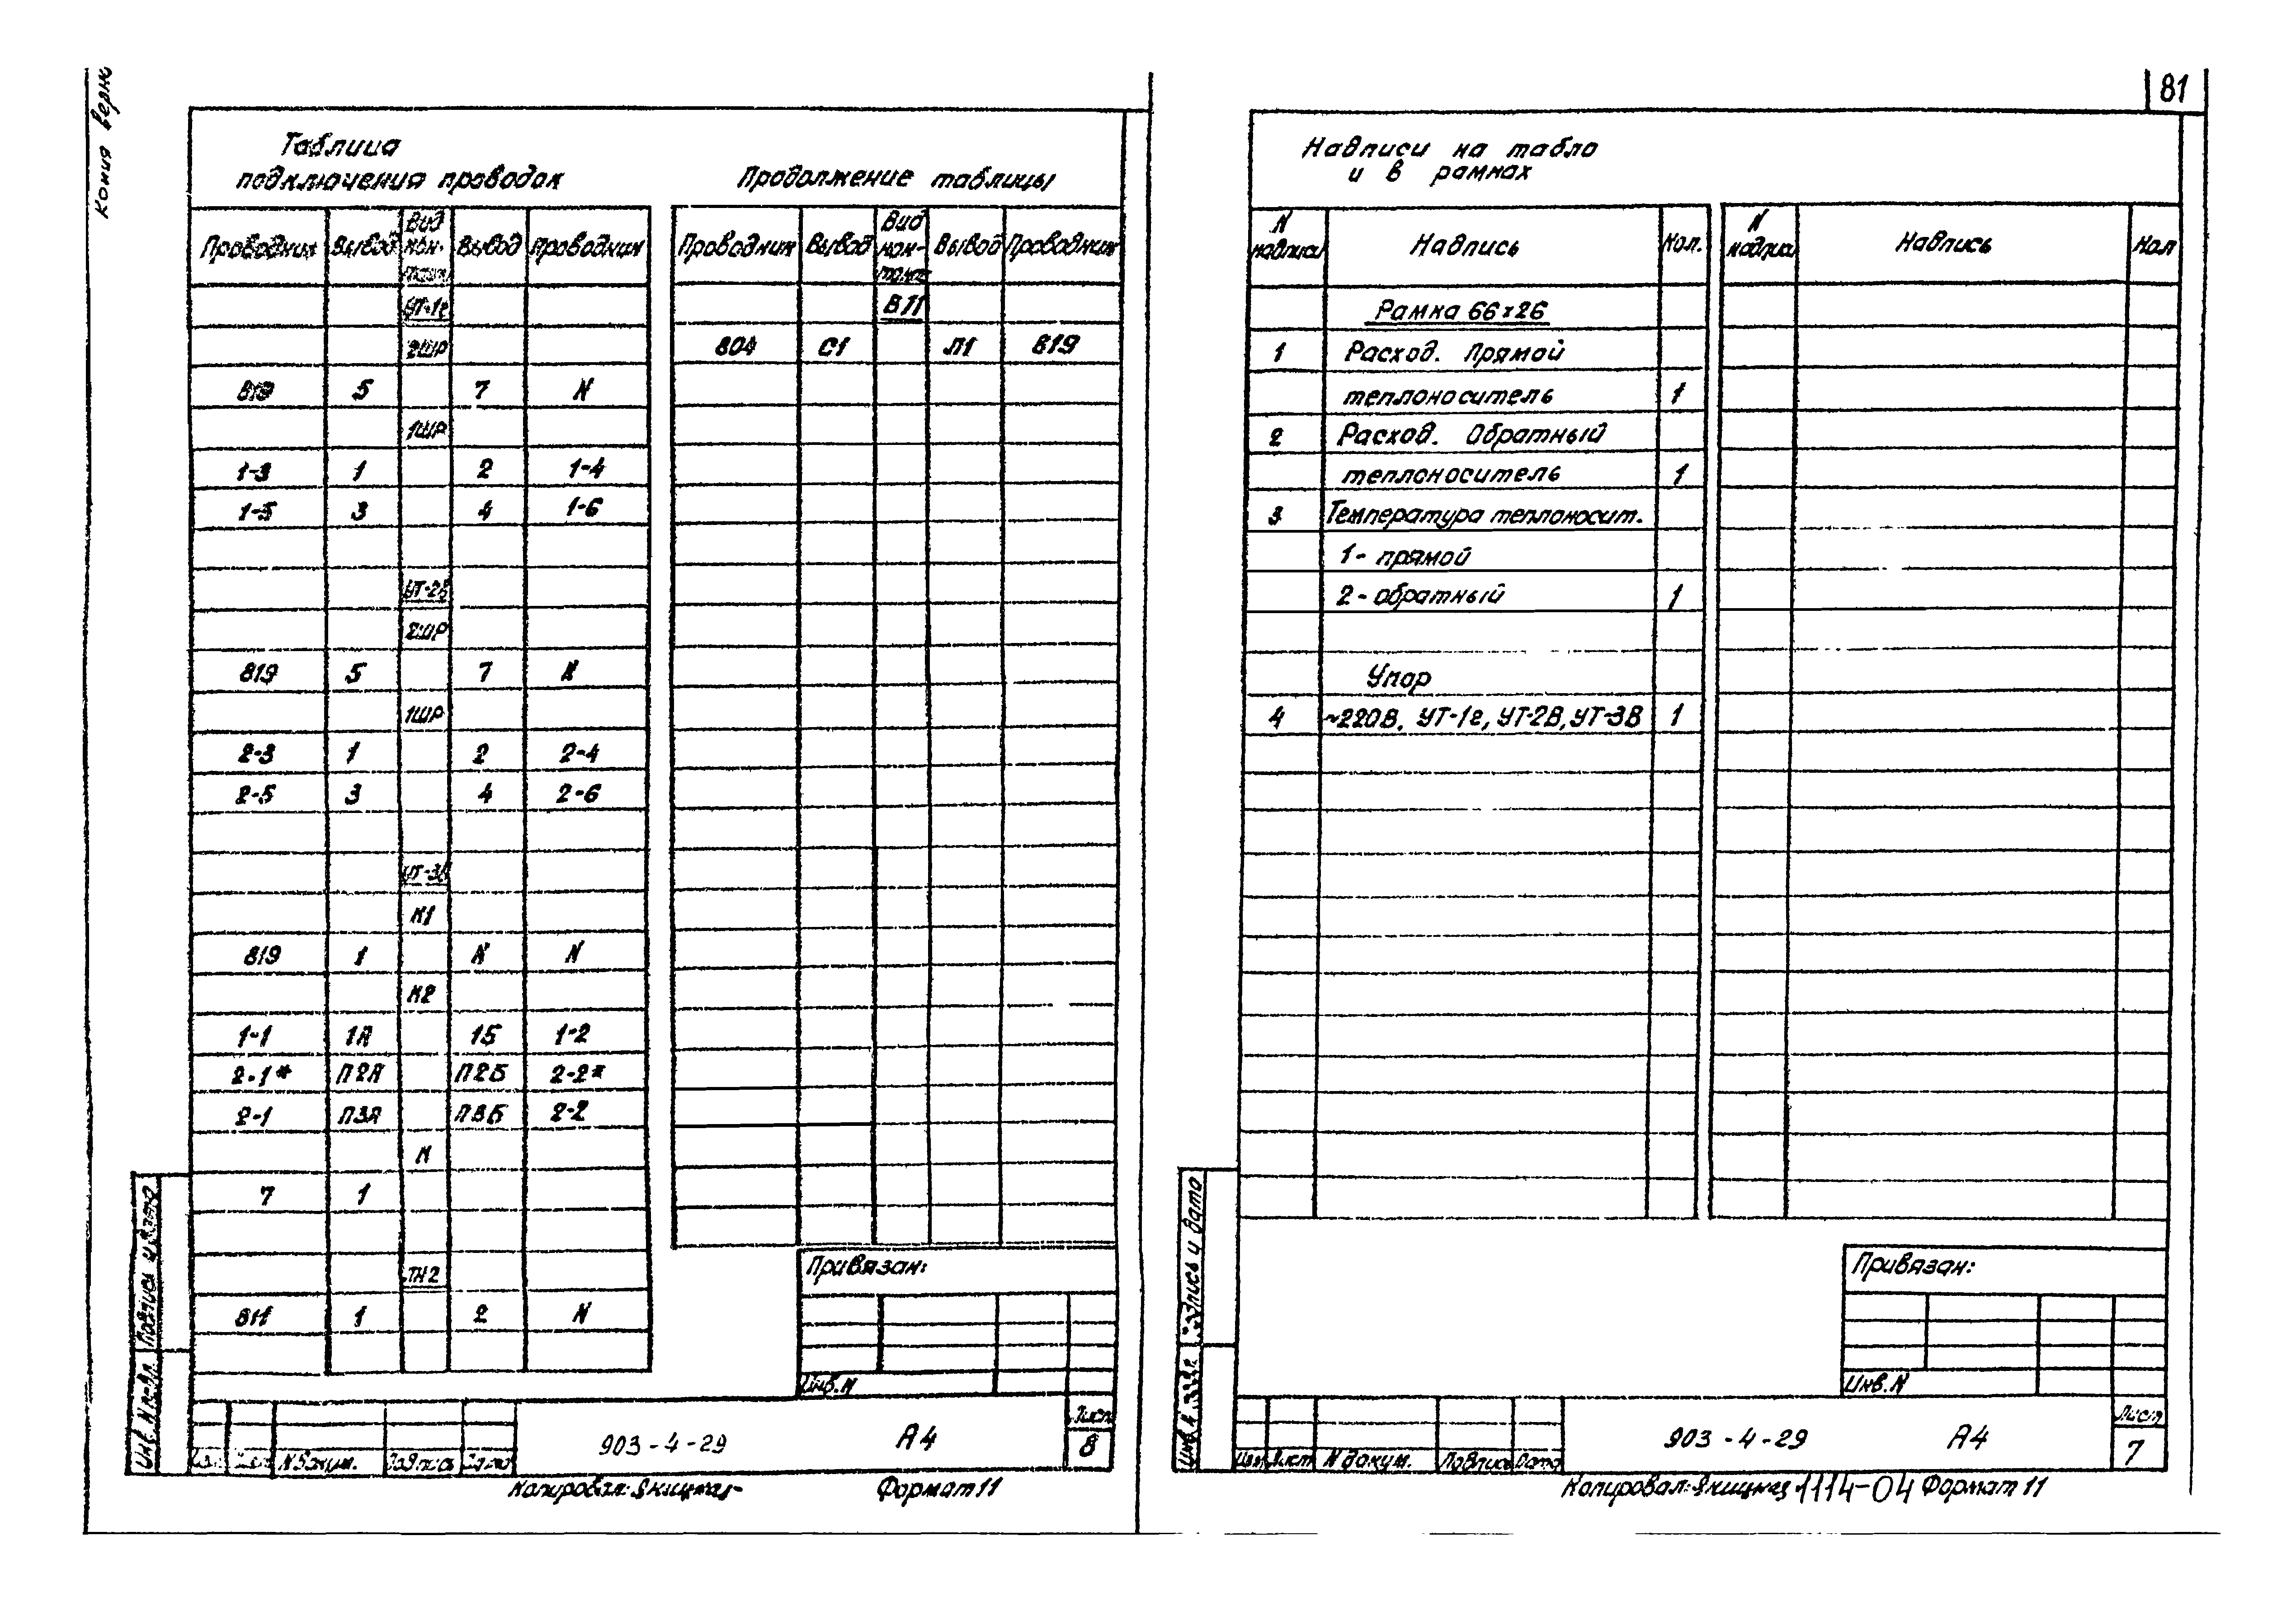 Копия верна
81
Таблица
подключения проводок
Проводник Вывод Вид кон-такт Вывод Проводник
УТ-1г
2ШР
819 5 7 N
1ШР
1-3 1 2 1-4
1-5 3 4 1-6
УТ-2в
2ШР
819 5 7 N
1ШР
2-3 1 2 2-4
2-5 3 4 2-6
УТ-3в
К1
819 1 N N
К2
1-1 1А 1Б 1-2
2-1* П2А П2Б 2-2*
2-1 П3А П3Б 2-2
К
7 1
ТН2
811 1 2 N
Продолжение таблицы
Проводник Вывод Вид кон-такт Вывод Проводник
В11
804 С1 Л1 819
Привязан:
Инв. N
Изм Лист N докум. Подпись Дата
903-4-29 А4
Лист
8
Копировал: Якицкая
Формат 11
Инв. N подл. Подпись и дата
Надписи на табло
и в рамках
N надписи Надпись Кол. N надписи Надпись Кол
Рамка 66х26
1 Расход. Прямой
теплоноситель 1
2 Расход. Обратный
теплоноситель 1
3 Температура теплоносит.
1- прямой
2- обратный 1
Упор
4 ~220В, УТ-1г, УТ-2В, УТ-3В 1
Привязан:
Инв. N
Изм Лист N докум. Подпись Дата
903-4-29 А4
Лист
7
Копировал: Якицкая 1114-04 Формат 11
Подпись и дата